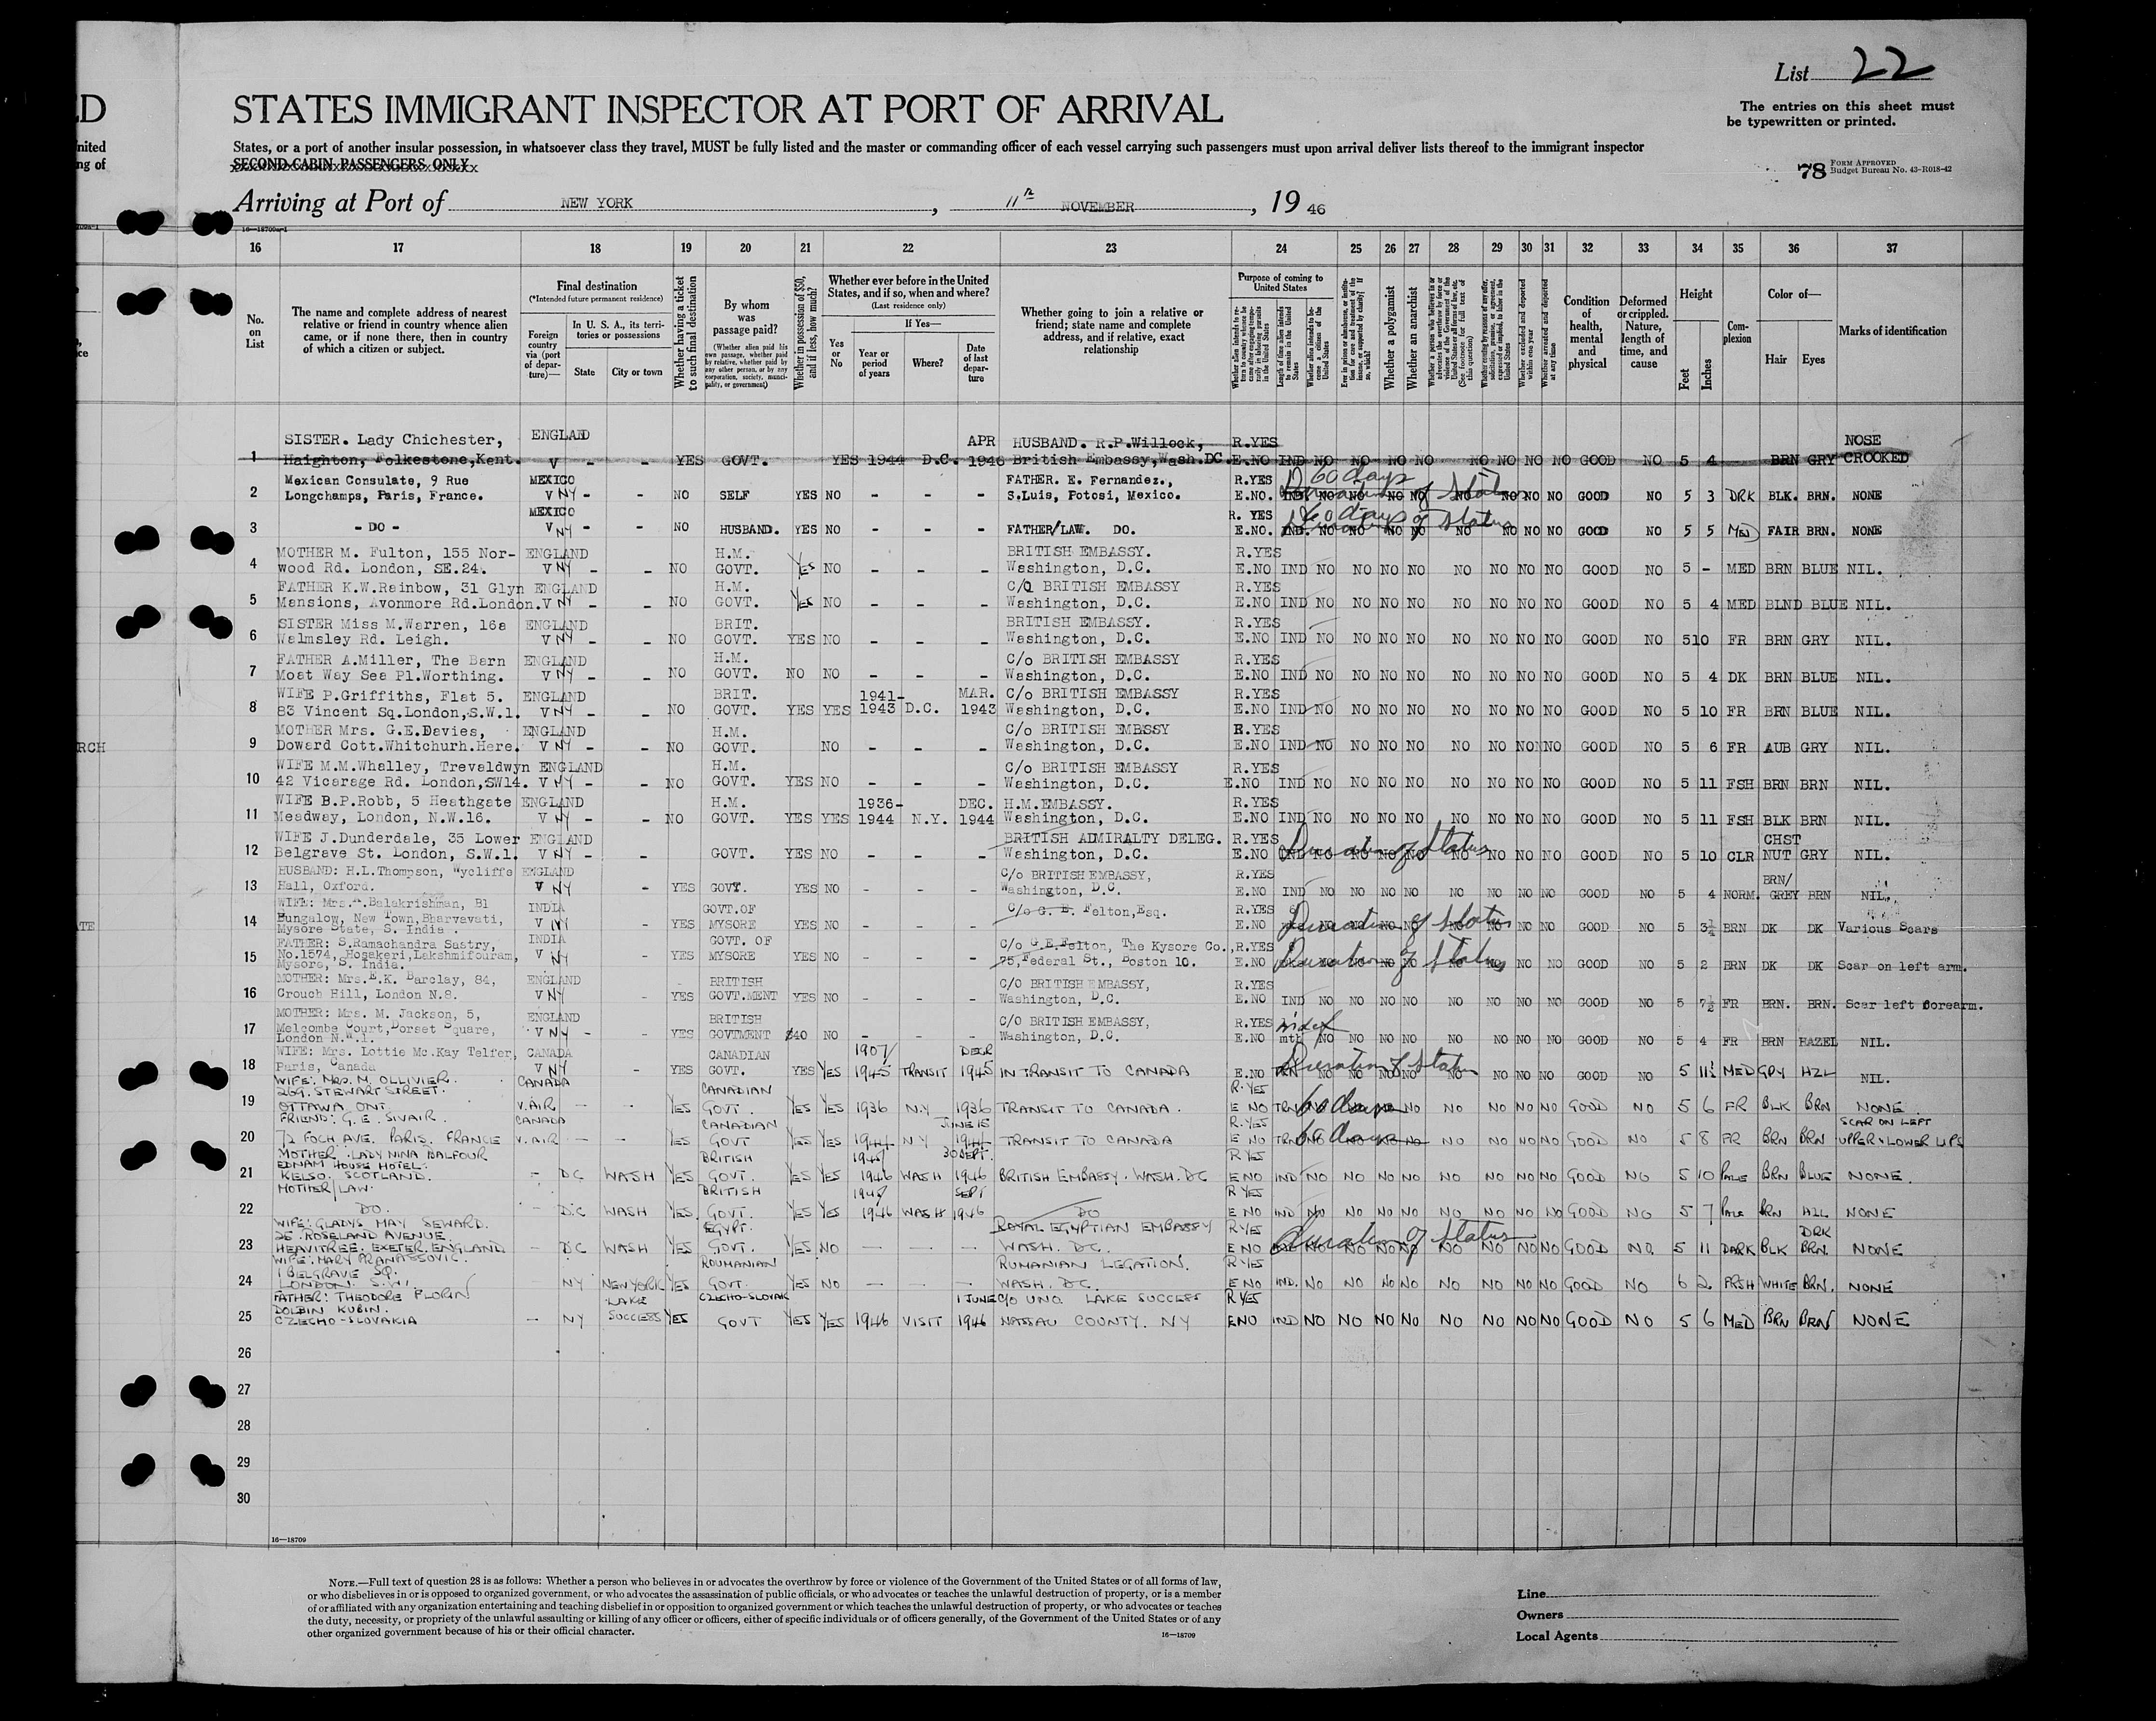 List 22
ED STATES IMMIGRANT INSPECTOR AT PORT OF ARRIVAL
The entries on this sheet must
be typewritten or printed.
nited States, or a port of another insular possession, in whatsoever class they travel, MUST be fully listed and the master or commanding officer of each vessel carrying such passengers must upon arrival deliver lists thereof to the immigrant inspector
ng of SECOND-CABIN PASSENGERS ONLY
78 FORM APPROVED
Budget Bureau No. 43-R018-42
Arriving at Port of NEW YORK, 11th NOVEMBER, 19 46
16 17 18 19 20 21 22 23 24 25 26 27 28 29 30 31 32 33 34 35 36 37
No. on List
The name and complete address of nearest relative or friend in country whence alien came, or if none there, then in country of which a citizen or subject.
Final destination
(*Intended future permanent residence)
Foreign country via (port of departure)—
In U. S. A., its territories or possessions
State City or town
Whether having a ticket to such final destination
By whom was passage paid?
(Whether alien paid his own passage, whether paid by relative, whether paid by any other person, or by any corporation, society, municipality, or government)
Whether in possession of $50, and if less, how much?
Whether ever before in the United States, and if so, when and where?
(Last residence only)
Yes or No
If Yes—
Year or period of years
Where?
Date of last departure
Whether going to join a relative or friend; state name and complete address, and if relative, exact relationship
Purpose of coming to United States
Whether a polygamist
Whether an anarchist
Condition of health, mental and physical
Deformed or crippled. Nature, length of time, and cause
Height
Feet Inches
Complexion
Color of—
Hair Eyes
Marks of identification
SISTER. Lady Chichester, ENGLAND APR HUSBAND. R.P.Willock, R.YES NOSE
1 Haighton, Folkestone,Kent. V - - YES GOVT. YES 1944 D.C. 1946 British Embassy,Wash.DC. E.NO IND NO NO NO NO NO NO NO NO GOOD NO 5 4 BRN GRY CROOKED
Mexican Consulate, 9 Rue MEXICO FATHER. E. Fernandez., R.YES 60 days
2 Longchamps, Paris, France. V NY - - NO SELF YES NO - - - S.Luis, Potosi, Mexico. E.NO. IND. NO NO NO NO NO NO NO NO GOOD NO 5 3 DRK BLK. BRN. NONE
Duration of Status
MEXICO R. YES 60 days
3 - DO - V NY - - NO HUSBAND. YES NO - - - FATHER/LAW. DO. E.NO. IND. NO NO NO NO NO NO NO NO GOOD NO 5 5 MED FAIR BRN. NONE
Duration of Status
MOTHER M. Fulton, 155 Nor- ENGLAND H.M. BRITISH EMBASSY. R.YES
4 wood Rd. London, SE.24. V NY - - NO GOVT. YES NO - - - Washington, D.C. E.NO IND NO NO NO NO NO NO NO NO GOOD NO 5 - MED BRN BLUE NIL.
FATHER K.W.Rainbow, 31 Glyn ENGLAND H.M. C/O BRITISH EMBASSY R.YES
5 Mansions, Avonmore Rd.London. V NY - - NO GOVT. YES NO - - - Washington, D.C. E.NO IND NO NO NO NO NO NO NO NO GOOD NO 5 4 MED BLND BLUE NIL.
SISTER Miss M.Warren, 16a ENGLAND BRIT. BRITISH EMBASSY. R.YES
6 Walmsley Rd. Leigh. V NY - - NO GOVT. YES NO - - - Washington, D.C. E.NO IND NO NO NO NO NO NO NO NO GOOD NO 510 FR BRN GRY NIL.
FATHER A.Miller, The Barn ENGLAND H.M. C/o BRITISH EMBASSY R.YES
7 Moat Way Sea Pl.Worthing. V NY - - NO GOVT. NO NO - - - Washington, D.C. E.NO IND NO NO NO NO NO NO NO NO GOOD NO 5 4 DK BRN BLUE NIL.
WIFE P.Griffiths, Flat 5. ENGLAND BRIT. 1941- MAR. C/o BRITISH EMBASSY R.YES
8 83 Vincent Sq.London,S.W.1. V NY - - NO GOVT. YES YES 1943 D.C. 1943 Washington, D.C. E.NO IND NO NO NO NO NO NO NO NO GOOD NO 5 10 FR BRN BLUE NIL.
MOTHER Mrs. G.E.Davies, ENGLAND H.M. C/o BRITISH EMBSSY R.YES
RCH 9 Doward Cott.Whitchurh.Here. V NY - - NO GOVT. NO - - - Washington, D.C. E.NO IND NO NO NO NO NO NO NO NO GOOD NO 5 6 FR AUB GRY NIL.
WIFE M.M.Whalley, Trevaldwyn ENGLAND H.M. C/o BRITISH EMBASSY R.YES
10 42 Vicarage Rd. London,SW14. V NY - - NO GOVT. YES NO - - - Washington, D.C. E.NO IND NO NO NO NO NO NO NO NO GOOD NO 5 11 FSH BRN BRN NIL.
WIFE B.P.Robb, 5 Heathgate ENGLAND H.M. 1936- DEC. H.M.EMBASSY. R.YES
11 Meadway, London, N.W.16. V NY - - NO GOVT. YES YES 1944 N.Y. 1944 Washington, D.C. E.NO IND NO NO NO NO NO NO NO NO GOOD NO 5 11 FSH BLK BRN NIL.
WIFE J.Dunderdale, 35 Lower ENGLAND BRITISH ADMIRALTY DELEG. R.YES CHST
12 Belgrave St. London, S.W.1. V NY - - GOVT. YES NO - - - Washington, D.C. E.NO IND NO NO NO NO NO NO NO NO GOOD NO 5 10 CLR NUT GRY NIL.
Duration of Status
HUSBAND: H.L.Thompson, Wycliffe ENGLAND C/o BRITISH EMBASSY, R.YES BRN/
13 Hall, Oxford. V NY - YES GOVT. YES NO - - - Washington, D.C. E.NO IND NO NO NO NO NO NO NO NO GOOD NO 5 4 NORM. GREY BRN NIL.
WIFE: Mrs.A.Balakrishman, B1 INDIA GOVT.OF C/o G. E. Felton,Esq. R.YES 6
ATE 14 Bungalow, New Town,Bharvavati, V NY - YES MYSORE YES NO - - - E.NO NO NO NO NO NO NO NO NO GOOD NO 5 3¼ BRN DK DK Various Scars
Mysore State, S. India. Duration of Status
FATHER: S.Ramachandra Sastry, INDIA GOVT. OF C/o G.E.Felton, The Kysore Co., R.YES
15 No.1574, Hosakeri,Lakshmifouram, V NY - YES MYSORE YES NO - - - 75,Federal St., Boston 10. E.NO NO NO NO NO NO NO NO GOOD NO 5 2 BRN DK DK Scar on left arm.
Mysore, S. India. Duration of Status
MOTHER: Mrs.E.K. Barclay, 84, ENGLAND BRITISH C/O BRITISH EMBASSY, R.YES
16 Crouch Hill, London N.8. V NY - YES GOVT.MENT YES NO - - - Washington, D.C. E.NO IND NO NO NO NO NO NO NO NO GOOD NO 5 7½ FR BRN. BRN. Scar left forearm.
MOTHER: Mrs. M. Jackson, 5, ENGLAND BRITISH C/O BRITISH EMBASSY, R.YES indef
17 Melcombe Court,Dorset Square, V NY - - YES GOVTMENT $40 NO - - - Washington, D.C. E.NO mth NO NO NO NO NO NO NO NO GOOD NO 5 4 FR BRN HAZEL NIL.
London N.W.1.
WIFE: Mrs. Lottie Mc.Kay Telfer, CANADA CANADIAN 1907/ DECR
18 Paris, Canada V NY - YES GOVT. YES YES 1945 TRANSIT 1945 IN TRANSIT TO CANADA E.NO NO NO NO NO NO NO NO NO GOOD NO 5 11½ MED GRY HZL NIL.
Duration of Status
WIFE: MRS. M. OLLIVIER. CANADA CANADIAN R.YES
269. STEWART STREET.
19 OTTAWA ONT V.AIR - - YES GOVT. YES YES 1936 N.Y 1936 TRANSIT TO CANADA. E NO TRN 60 days NO NO NO NO NO GOOD NO 5 6 FR BLK BRN NONE
FRIEND: G. E. SIVAIR. CANADA CANADIAN JUNE 15 R.YES SCAR ON LEFT
20 72 FOCH AVE. PARIS. FRANCE V.AIR - - YES GOVT YES YES 1944 NY 1944 TRANSIT TO CANADA E NO TRN 60 days NO NO NO NO NO GOOD NO 5 8 FR BRN BRN UPPER & LOWER LIPS
MOTHER. LADY NINA BALFOUR BRITISH 30 SEPT. R YES
EDNAM HOUSE HOTEL.
21 KELSO. SCOTLAND. - DC WASH YES GOVT. YES YES 1946 WASH 1946 BRITISH EMBASSY. WASH. DC E NO IND NO NO NO NO NO NO NO NO GOOD NO 5 10 PALE BRN BLUE NONE.
MOTHER/LAW. BRITISH SEPT R YES
22 DO. - D.C WASH YES. GOVT. YES YES 1946 WASH 1946 DO E NO IND NO NO NO NO NO NO NO NO GOOD NO 5 7 PALE BRN HZL NONE
WIFE: GLADYS MAY SEWARD. EGYPT. ROYAL EGYPTIAN EMBASSY R YES DRK
25 ROSELAND AVENUE.
23 HEAVITREE. EXETER. ENGLAND - DC WASH YES GOVT. YES NO - - - WASH. DC. E NO NO NO NO NO NO NO NO NO GOOD NO. 5 11 DARK BLK BRN. NONE
Duration of Status
WIFE: MARY ROUMANIAN RUMANIAN LEGATION. R YES
1 BELGRAVE SQ.
24 LONDON. S.W.1 - NY NEW YORK YES GOVT. YES NO - - - WASH. DC. E NO IND. NO NO NO NO NO NO NO NO GOOD NO 6 2 FRSH WHITE BRN. NONE
FATHER: THEODORE FLORIN LAKE CZECHO-SLOVAK 1 JUNE C/O UNO. LAKE SUCCESS R YES
DOLBIN KUBIN.
25 CZECHO-SLOVAKIA - NY SUCCESS YES GOVT YES YES 1946 VISIT 1946 NASSAU COUNTY. NY E NO IND NO NO NO NO NO NO NO NO GOOD NO 5 6 MED BRN BRN NONE
26
27
28
29
30
16—18709
NOTE.—Full text of question 28 is as follows: Whether a person who believes in or advocates the overthrow by force or violence of the Government of the United States or of all forms of law,
or who disbelieves in or is opposed to organized government, or who advocates the assassination of public officials, or who advocates or teaches the unlawful destruction of property, or is a member
of or affiliated with any organization entertaining and teaching disbelief in or opposition to organized government or which teaches the unlawful destruction of property, or who advocates or teaches
the duty, necessity, or propriety of the unlawful assaulting or killing of any officer or officers, either of specific individuals or of officers generally, of the Government of the United States or of any
other organized government because of his or their official character. 16—18709
Line
Owners
Local Agents